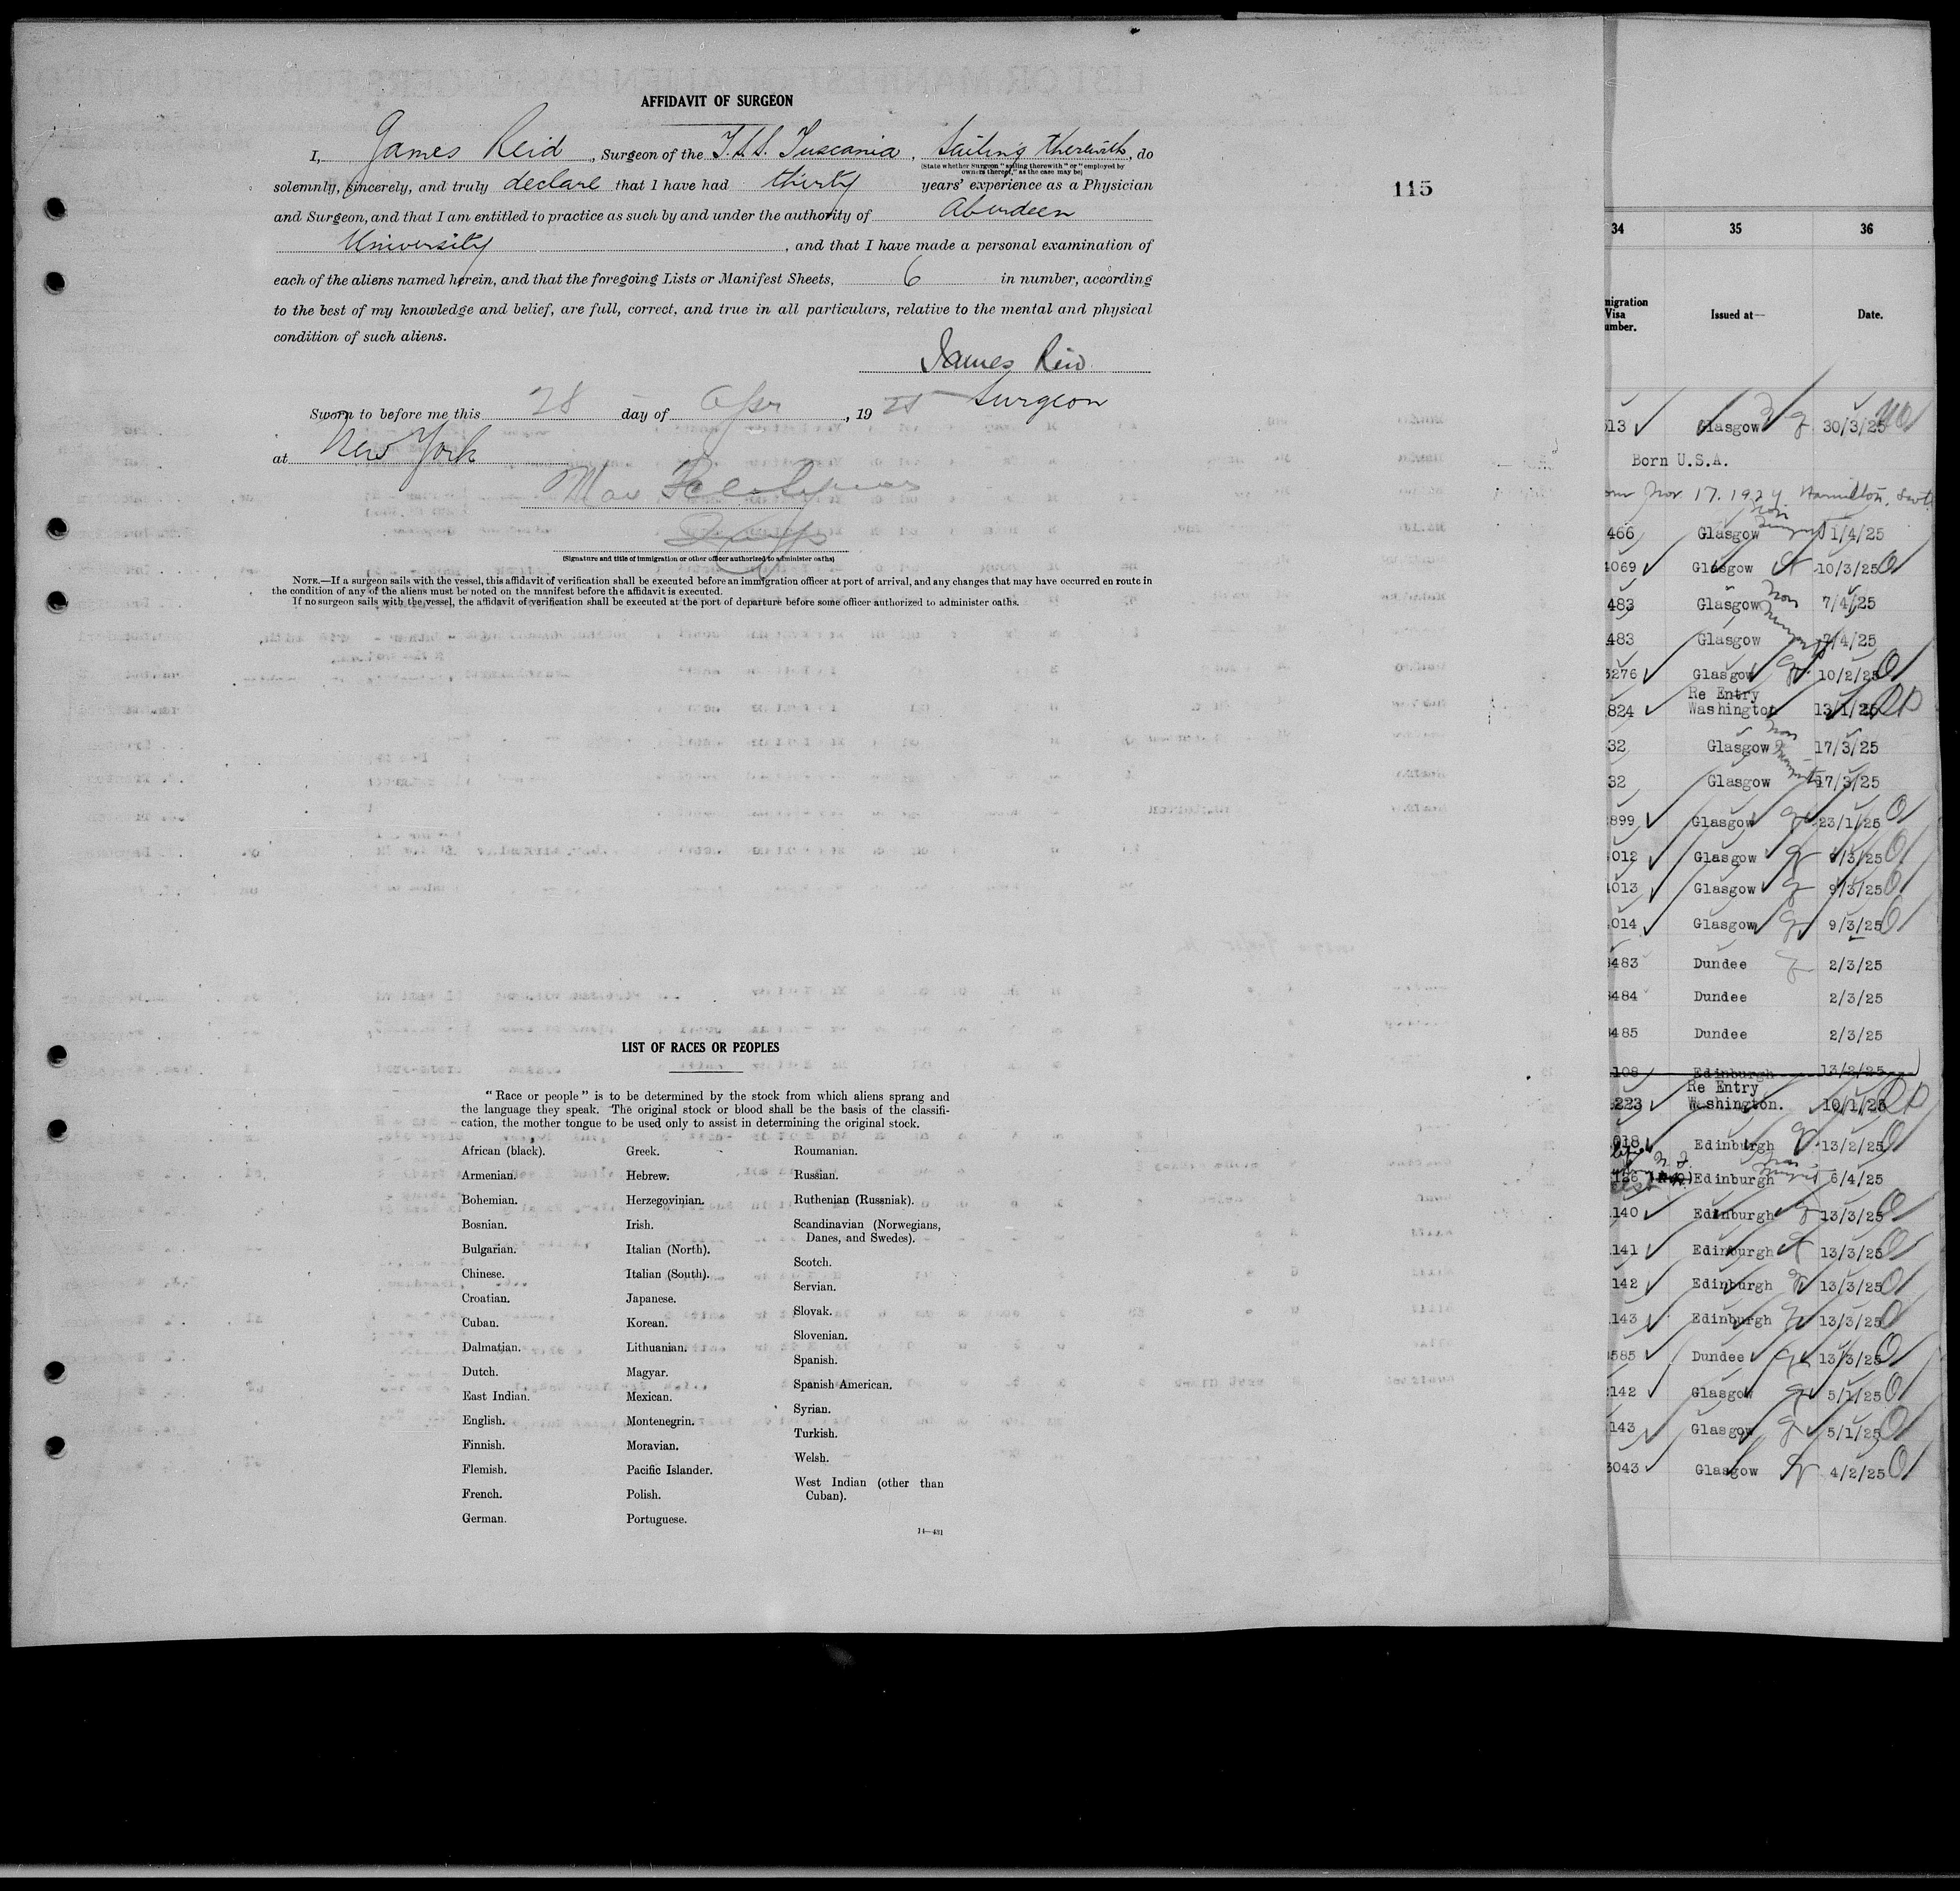 AFFIDAVIT OF SURGEON
I, James Reid, Surgeon of the T.S.S. Tuscania, Sailing therewith, do
(State whether Surgeon "sailing therewith" or "employed by
owners thereof," as the case may be)
solemnly, sincerely, and truly declare that I have had thirty years' experience as a Physician
and Surgeon, and that I am entitled to practice as such by and under the authority of Aberdeen
University, and that I have made a personal examination of
each of the aliens named herein, and that the foregoing Lists or Manifest Sheets, 6 in number, according
to the best of my knowledge and belief, are full, correct, and true in all particulars, relative to the mental and physical
condition of such aliens.
James Reid
Surgeon
Sworn to before me this 28 day of Apr, 1925
at New York
(Signature and title of immigration or other officer authorized to administer oaths)
NOTE.—If a surgeon sails with the vessel, this affidavit of verification shall be executed before an immigration officer at port of arrival, and any changes that may have occurred en route in
the condition of any of the aliens must be noted on the manifest before the affidavit is executed.
If no surgeon sails with the vessel, the affidavit of verification shall be executed at the port of departure before some officer authorized to administer oaths.
115
LIST OF RACES OR PEOPLES
"Race or people" is to be determined by the stock from which aliens sprang and
the language they speak. The original stock or blood shall be the basis of the classifi-
cation, the mother tongue to be used only to assist in determining the original stock.
African (black).
Armenian.
Bohemian.
Bosnian.
Bulgarian.
Chinese.
Croatian.
Cuban.
Dalmatian.
Dutch.
East Indian.
English.
Finnish.
Flemish.
French.
German.
Greek.
Hebrew.
Herzegovinian.
Irish.
Italian (North).
Italian (South).
Japanese.
Korean.
Lithuanian.
Magyar.
Mexican.
Montenegrin.
Moravian.
Pacific Islander.
Polish.
Portuguese.
Roumanian.
Russian.
Ruthenian (Russniak).
Scandinavian (Norwegians,
Danes, and Swedes).
Scotch.
Servian.
Slovak.
Slovenian.
Spanish.
Spanish American.
Syrian.
Turkish.
Welsh.
West Indian (other than
Cuban).
14—431
34 35 36
migration
Visa
umber.
Issued at—
Date.
513 Glasgow 30/3/25
Born U.S.A.
Nov. 17. 1924 Hamilton, Scotl
466 Glasgow 1/4/25
4069 Glasgow 10/3/25
483 Glasgow 7/4/25
483 Glasgow 7/4/25
3276 Glasgow 10/2/25
Re Entry
824 Washington 13/1/25
32 Glasgow 17/3/25
32 Glasgow 17/3/25
899 Glasgow 23/1/25
012 Glasgow 9/3/25
013 Glasgow 9/3/25
014 Glasgow 9/3/25
3483 Dundee 2/3/25
3484 Dundee 2/3/25
3485 Dundee 2/3/25
108 Edinburgh 13/2/25
Re Entry
223 Washington. 10/1/25
018 Edinburgh 13/2/25
126 Edinburgh 6/4/25
140 Edinburgh 13/3/25
141 Edinburgh 13/3/25
142 Edinburgh 13/3/25
143 Edinburgh 13/3/25
585 Dundee 13/3/25
142 Glasgow 5/1/25
143 Glasgow 5/1/25
3043 Glasgow 4/2/25